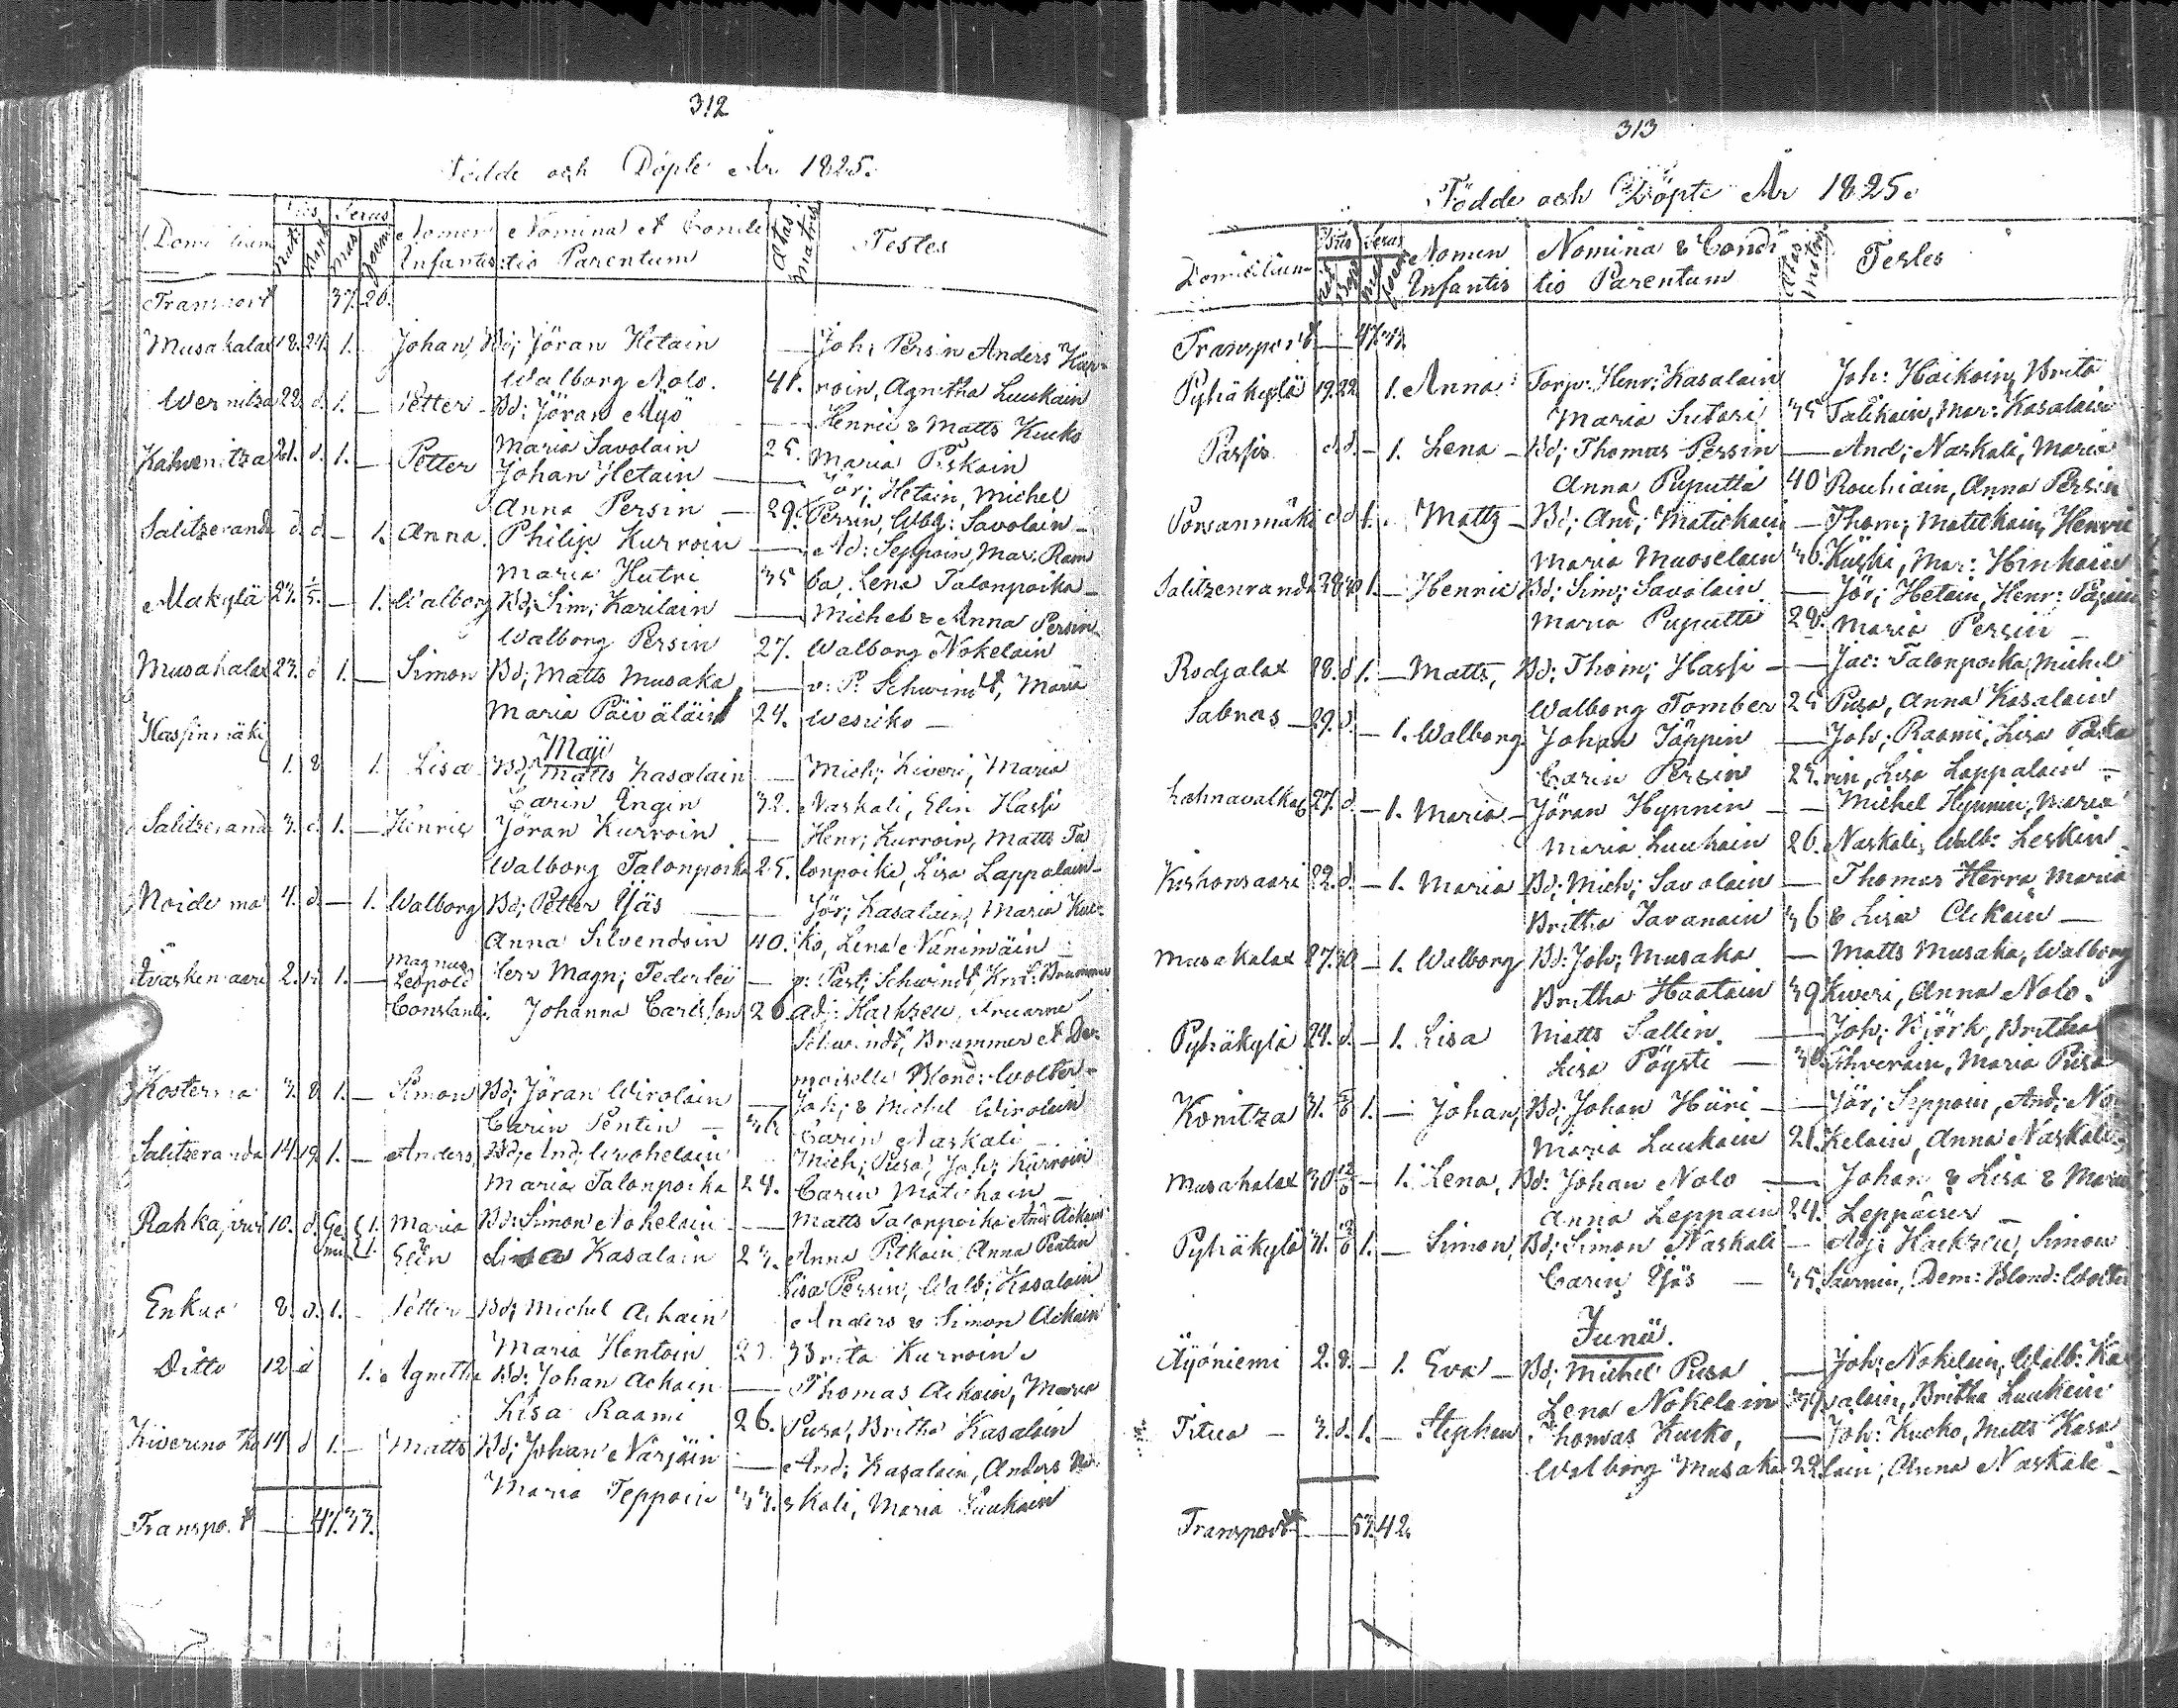 312
Födde och Döpte År 1825.
Domicilium Nati Bapt Sexus Mas Foem Nomen Infantis Nomina et Condi tio Parentum Ætas Matris Testes
Transport 37. 26.
Musakalax 18. 24. 1. Johan Bd; Jöran Hetain — Joh; Persin Anders Kur-
Walborg Nolo. 41. roin, Agnetha Luukain
Wernitza 22. d. 1. — Petter Bd; Jöran Äyö — Henric & Matts Kucko
Maria Savolain 25. Maria Piskain
Kahvenitza 21. d. 1. — Petter Johan Hetain — Jör; Hetain, Michel
Anna Persin — 29. Persin, Wbg: Savolain —
Salitzeranda d. d. — 1. Anna. Philip Kurroin — Ad: Seppoin, Mar: Ram
Maria Hutri 35 ba, Lena Talonpoika —
Makylä 27. 1/5. — 1. Walborg Bd; Sim; Karilain — Michel & Anna Persin
Walborg Persin 27. Walborg Nokelain
Musakalax 23. d 1. — Simon Bd; Matts Musaka — v. P. Schwindt, Maria
Maria Päiväläin 24. Wesiko —
Hassinmäki
Maji
1. 8 1. Lisa Bd; Matts Kasalain — Mich; Kiveri, Maria
Carin Engin 32. Naskali, Elin Hassi
Salitzeranda 3. d. 1. — Henric Jöran Kurroin — Henr; Kurroin, Matts Ta
Walborg Talonpoika 25. lonpoika, Lisa Lappalain —
Noide ma 4. d. — 1. Walborg Bd; Petter Yjäs — Jör; Kasalain, Maria Kuc-
Anna Silvendoin 40. ko, Lena Nänimäin —
2. 1. — Magnus Leopold Herr Magn; Federleij — v: Past; Schwindt, Brummer
Constantin. Johanna Carlsson 26 adj: Hackzell, Fruarne
Schwindt, Brummer et De-
moiselle Blond: Wolter —
Kosterma 3. 8 1. — Simon Bd; Jöran Wirolain — Joh; & Michel Wirolain
Carin Pentin — 36. Carin Naskali —
Salitzeranda 14. 19. 1. — Anders, Bd; And; Wohelain Mich; Pusa, Joh; Kurroin
Maria Talonpoika 24. Carin Matikain —
Rahkajärvi 10. d. Ge mi 1. 1. Maria & Elin Bd; Simon Nokelain — Matts Talonpoika And; Ackain
Lisa Kasalain 23. Anna Pitkain Anna Pentin
Lisa Persin, Walb; Kasalain
Enkua 8. d. 1. Petter Bd; Michel Ackain Anders & Simon Ackain
Maria Hentoin 23. Brita Kurroin
Ditto 12 d 1. Agnetha Bd: Johan Ackain — Thomas Ackain, Maria
Lisa Raami 26. Pusa, Britha Kasalain
14 d 1. — Matts Bd; Johan Närjäin — And; Kasalain, Anders Na-
Maria Teppoin 33. skali, Maria Luukain
Transport — 47. 33.
313
Födde och Döpte År 1825.
Domicilium Nati Bapt Sexus Mas Foem Nomen Infantis Nomina & Condi tio Parentum Ætas Matris Testes
Transport — 47. 33.
Pyhäkylä 19. 22 1. Anna Torp: Henr; Kasalain Joh: Haikoin, Brita
Maria Sutari 35 Talikain, Mar: Kasalain
Parsis d. d. — 1. Lena — Bd; Thomas Persin — And; Naskali, Maria
Anna Puputti 40 Rouhiain, Anna Persin
Porsanmäki d d 1. Matts — Bd; And; Matickain — Thom; Matickain, Henric
Maria Muoselain 30. Kuski, Mar: Hinkain
Salitzenranda 28 30 1. — Henric Bd; Sim; Savolain — Jör; Hetain, Henr: Pajain
Maria Puputti 28. Maria Persin —
Rodjalax 28. d 1. — Matts, Bd; Thom; Hassi — Jac: Talonpoika, Michel
Walborg Tomber 25 Pusa, Anna Kasalain
Sabnas — 29. d. — 1. Walborg Johan Jäppin — Joh; Raami, Lisa Paka
Carin Persin 25. rin, Lisa Lappalain —
Lohnavalkas 27. d. — 1. Maria — Jöran Hynnin — Michel Hynnin, Maria
Maria Luukain 26. Naskali, Walb: Leskin
Kirkonsaari 22. d. — 1. Maria Bd; Mich; Savolain — Thomas Herra, Maria
Britha Tavanain 36 & Lisa Ackain —
Musakalax 27. 30 — 1. Walborg Bd: Joh; Musaka — Matts Musaka, Walborg
Britha Haatain 39 Kiveri, Anna Nolo.
Pyhäkylä 24. d. — 1. Lisa Matts Sallin. — Joh; Björk, Britha
Lisa Pöysti — 30. Ihverain, Maria Pusa
Konitza 31. 5/6 1. — Johan, Bd; Johan Hüri — Jör; Seppoin, And; No
Maria Luukain 21. kelain, Anna Naskali
Musakalax 30 12/6 — 1. Lena, Bd: Johan Nolo — Johan & Lisa & Maria
Anna Leppain 24. Leppäiser —
Pyhäkylä 31. 12/6 1. — Simon, Bd; Simon Naskali — Adj: Hackzell, Simon
Carin Yjäs — 35. Saernin, Dem: Blond: Wolter
Junii.
Äyöniemi 2. 8. — 1. Eva — Bd; Michel Pusa — Joh; Nokelain, Walb: Ka
Lena Nokelain 39 salain, Britha Luukain
Titua — 3. d. 1. — Stephan Thomas Kucko, — Joh: Kucko, Matts Kasa
Walborg Musaka 22 lain, Anna Naskali —
Transport — 53. 42.